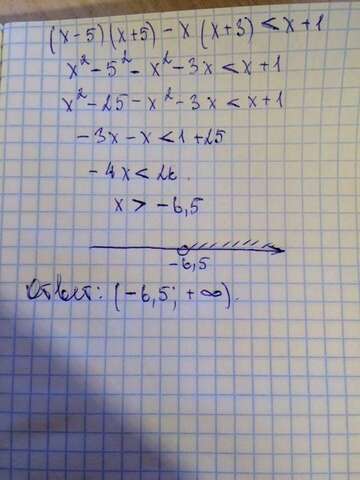 (x-5)(x+5) - x(x+3) < x+1
x² - 5² - x² - 3x < x+1
x² - 25 - x² - 3x < x+1
-3x - x < 1 + 25
-4x < 26.
x > -6,5
-6,5
Ответ: (-6,5; +∞).